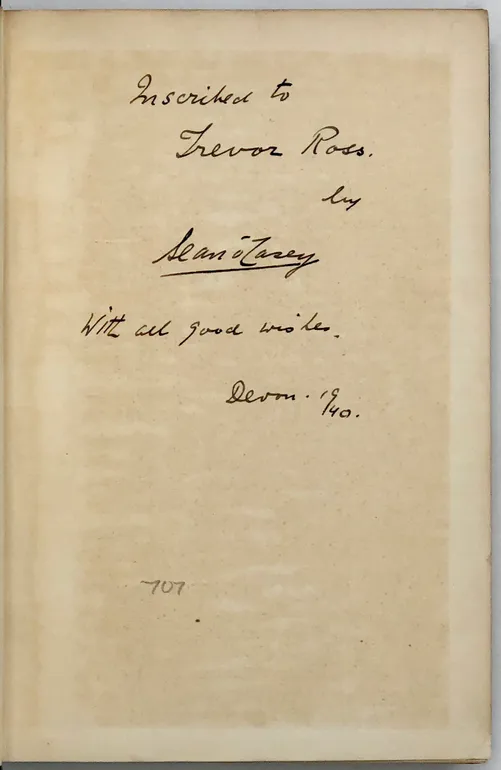 Inscribed to
Trevor Ross.
by
Sean O'Casey
With all good wishes.
Devon. 19/40.
707